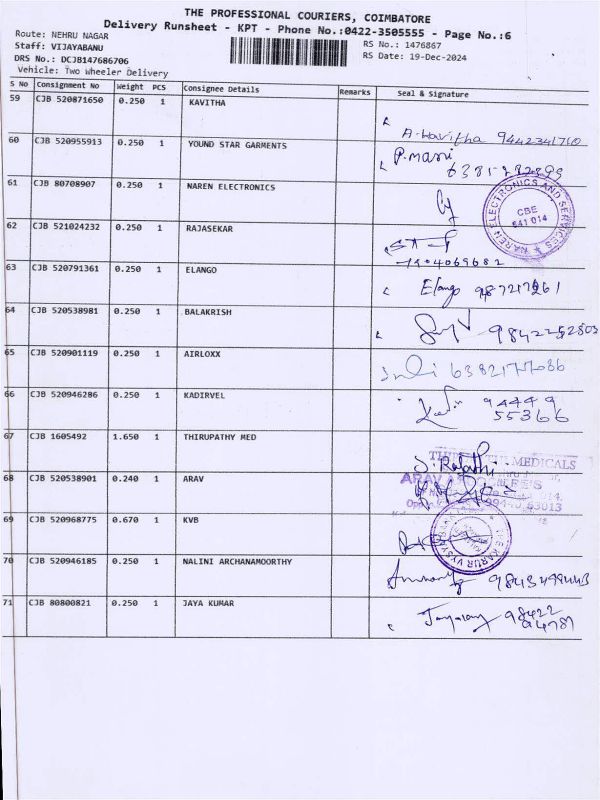 THE PROFESSIONAL COURIERS, COIMBATORE
Delivery Runsheet - KPT - Phone No.:0422-3505555 - Page No.:6
Route: NEHRU NAGAR
Staff: VIJAYABANU
RS No.: 1476867
DRS No.: DCJB147686706
RS Date: 19-Dec-2024
Vehicle: Two Wheeler Delivery
S No Consignment No Weight PCS Consignee Details Remarks Seal & Signature
59 CJB 520871650 0.250 1 KAVITHA
A. Kavitha 9442341710
60 CJB 520955913 0.250 1 YOUND STAR GARMENTS P.mani
6381282899
61 CJB 80708907 0.250 1 NAREN ELECTRONICS
NAREN ELECTRONICS AND SERVICES
CBE
641 014
62 CJB 521024232 0.250 1 RAJASEKAR
7904069682
63 CJB 520791361 0.250 1 ELANGO Elango
64 CJB 520538981 0.250 1 BALAKRISH 9842252803
65 CJB 520901119 0.250 1 AIRLOXX 6382177086
66 CJB 520946286 0.250 1 KADIRVEL 94449
55366
67 CJB 1605492 1.650 1 THIRUPATHY MED
MEDICALS
68 CJB 520538901 0.240 1 ARAV
ARAV
69 CJB 520968775 0.670 1 KVB
THE KARUR VYSYA BANK
70 CJB 520946185 0.250 1 NALINI ARCHANAMOORTHY 9843499443
71 CJB 80800821 0.250 1 JAYA KUMAR 98422
94781